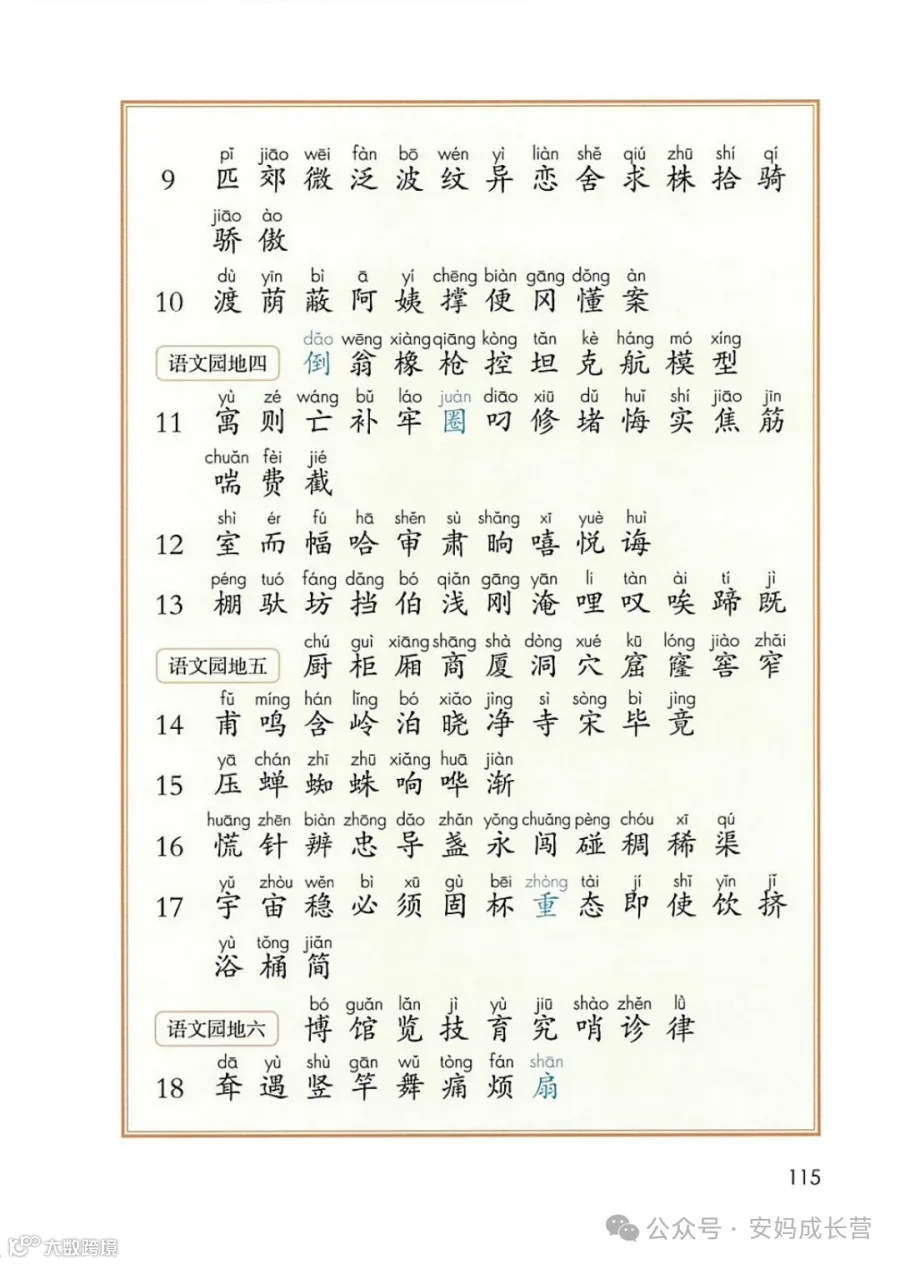 pǐ jiāo wēi fàn bō wén yì liàn shě qiú zhū shí qí
9 匹 郊 微 泛 波 纹 异 恋 舍 求 株 拾 骑
jiāo ào
骄 傲
dù yīn bì ā yí chēng biàn gāng dǒng àn
10 渡 荫 蔽 阿 姨 撑 便 冈 懂 案
dǎo wēng xiàng qiāng kòng tǎn kè háng mó xíng
语文园地四 倒 翁 橡 枪 控 坦 克 航 模 型
yù zé wáng bǔ láo juàn diāo xiū dǔ huǐ shí jiāo jīn
11 寓 则 亡 补 牢 圈 叼 修 堵 悔 实 焦 筋
chuǎn fèi jié
喘 费 截
shì ér fú hā shěn sù shǎng xī yuè huì
12 室 而 幅 哈 审 肃 晌 嘻 悦 诲
péng tuó fáng dǎng bó qiǎn gāng yān li tàn ài tí jì
13 棚 驮 坊 挡 伯 浅 刚 淹 哩 叹 唉 蹄 既
chú guì xiāng shāng shà dòng xué kū lóng jiào zhǎi
语文园地五 厨 柜 厢 商 厦 洞 穴 窟 窿 窖 窄
fǔ míng hán lǐng bó xiǎo jìng sì sòng bì jìng
14 甫 鸣 含 岭 泊 晓 净 寺 宋 毕 竟
yā chán zhī zhū xiǎng huā jiàn
15 压 蝉 蜘 蛛 响 哗 渐
huāng zhēn biàn zhōng dǎo zhǎn yǒng chuǎng pèng chóu xī qú
16 慌 针 辨 忠 导 盏 永 闯 碰 稠 稀 渠
yǔ zhòu wěn bì xū gù bēi zhòng tài jí shǐ yǐn jǐ
17 宇 宙 稳 必 须 固 杯 重 态 即 使 饮 挤
yù tǒng jiǎn
浴 桶 简
bó guǎn lǎn jì yù jiū shào zhěn lǜ
语文园地六 博 馆 览 技 育 究 哨 诊 律
dā yù shù gān wǔ tòng fán shān
18 耷 遇 竖 竿 舞 痛 烦 扇
115
公众号 · 安妈成长营
大数跨境